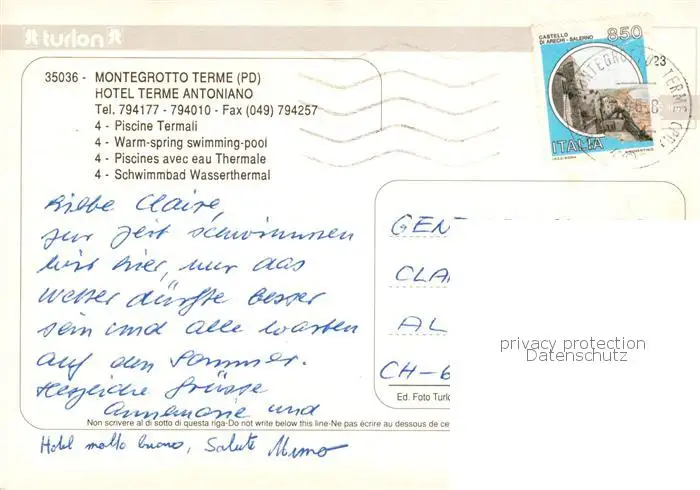 turlon
CASTELLO
DI ARECHI - SALERNO
850
ITALIA
MONTEGROTTO TERME (PD)
23
35036 - MONTEGROTTO TERME (PD)
HOTEL TERME ANTONIANO
Tel. 794177 - 794010 - Fax (049) 794257
4 - Piscine Termali
4 - Warm-spring swimming-pool
4 - Piscines avec eau Thermale
4 - Schwimmbad Wasserthermal
Liebe Claire,
zur Zeit schwimmen
wir hier, nur das
Wetter dürfte besser
sein und alle warten
auf den Sommer.
Herzliche Grüsse
Annemarie und
Non scrivere al di sotto di questa riga-Do not write below this line-Ne pas écrire au dessous de ce
Hotel molto buono, Saluti Mimo
GEN
CLA
AL
CH-6
Ed. Foto Turlo
privacy protection
Datenschutz